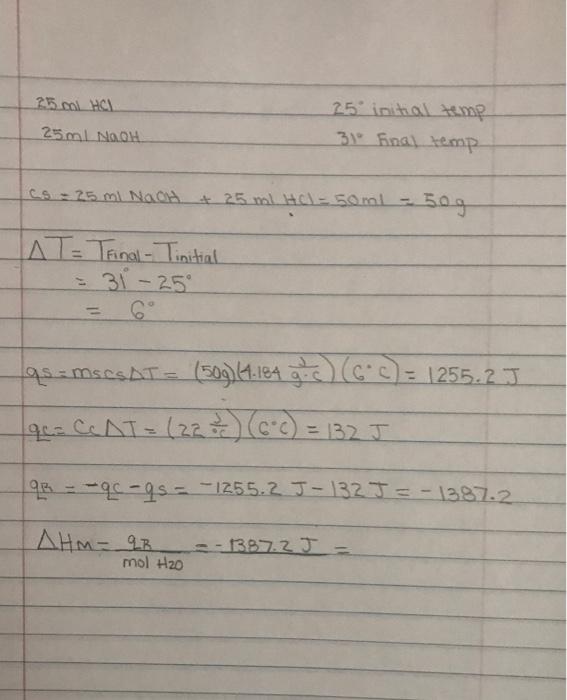 25ml HCl 25° initial temp
25ml NaOH 31° Final temp
cs = 25 ml NaOH + 25 ml HCl = 50ml = 50g
ΔT = TFinal - Tinitial
= 31° - 25°
= 6°
qs = mscsΔT = (50g)(4.184 J/g·°C)(6°C) = 1255.2 J
qc = CcΔT = (22 J/°C)(6°C) = 132 J
qR = -qc - qs = -1255.2 J - 132 J = -1387.2
ΔHm = qR/mol H2O = -1387.2 J =